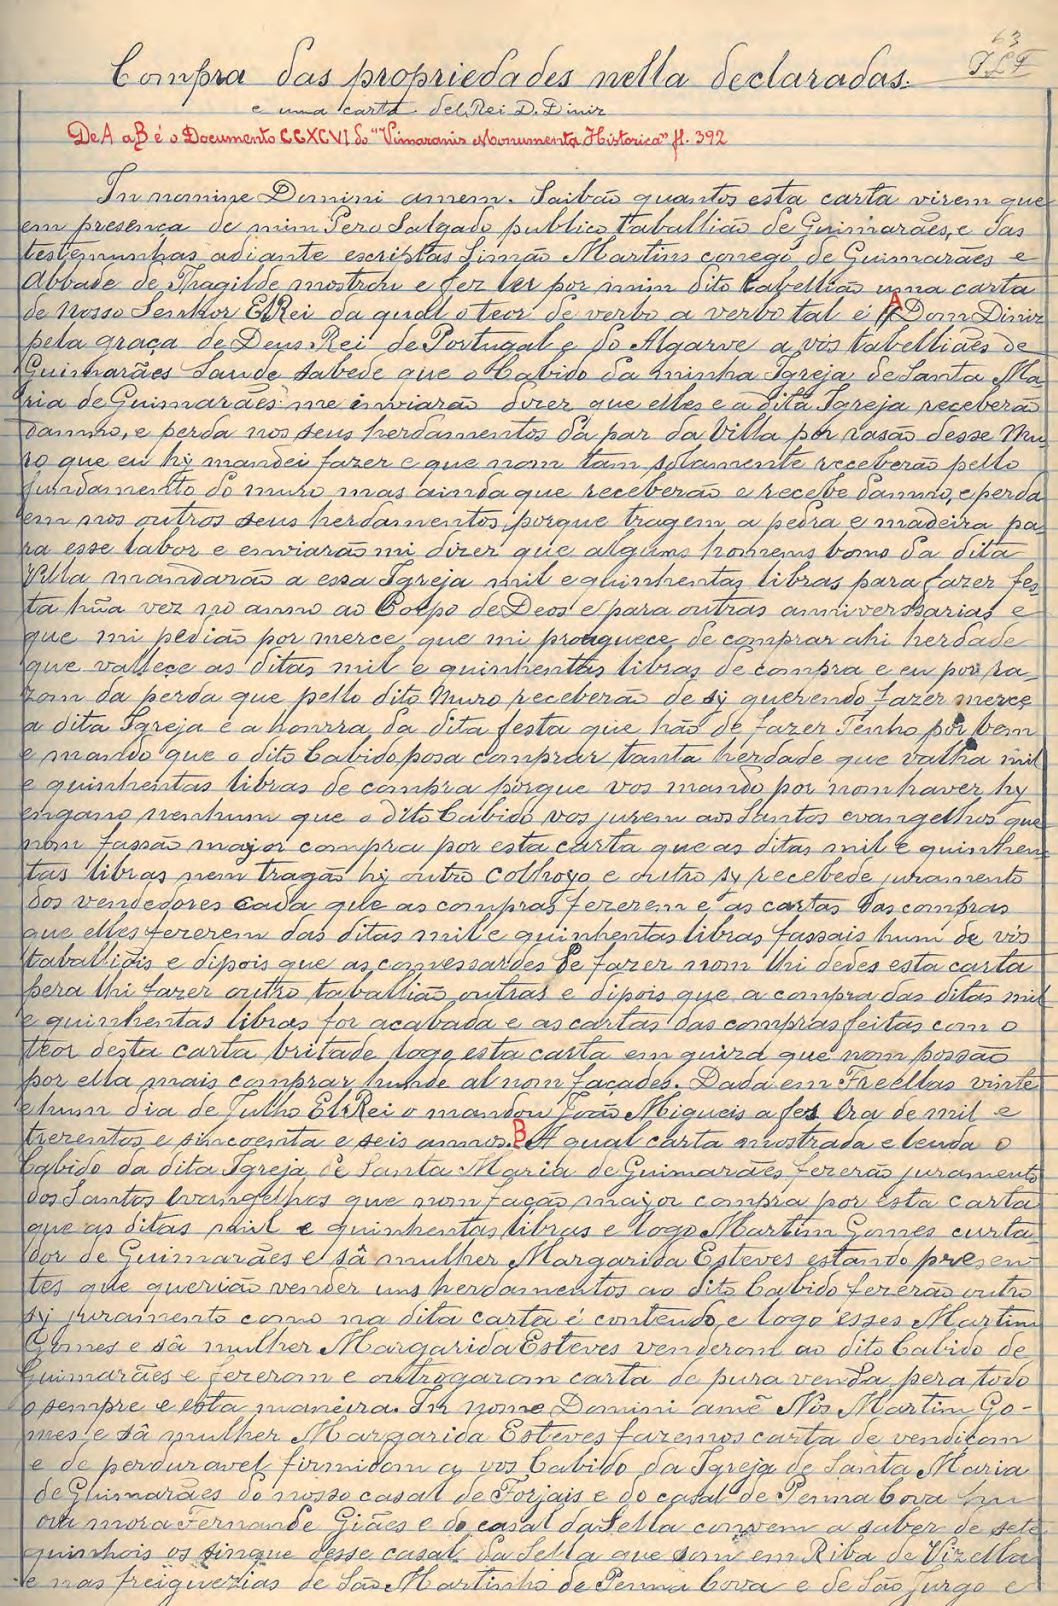 63
Compra das propriedades nella declaradas.
e uma carta del Rei D. Diniz
De A a B é o Documento CCXCVI do "Vimaranis Monumenta Historica" fl. 392
In nomine Domini amem. Saibão quantos esta carta virem que
em presença de mim Pero Salgado publico taballião de Guimarães, e das
testemunhas adiante escriptas Simão Martins conego de Guimarães e
Abbade de Thagilde mostrou e fez ler por mim dito tabellião uma carta
de Nosso Senhor ElRei da qual o teor de verbo a verbo tal é A Dom Diniz
pela graça de Deus Rei de Portugal e do Algarve a vós tabelliães de
Guimarães Saude sabede que o Cabido da minha Igreja de Santa Ma
ria de Guimarães me inviarão dizer que elles e a dita Igreja receberão
damno, e perda nos seus herdamentos da par da Villa por rasão desse Mu
ro que eu hy mandei fazer e que nom tam solamente receberão pello
fundamento do muro mas ainda que receberão e recebe damno, e perda
em nos outros seus herdamentos, porque tragem a pedra e madeira pa
ra esse labor e enviarão mi dizer que alguns homens bons da dita
Villa mandarão a essa Igreja mil e quinhentas libras para fazer fes
ta hũa vez no anno ao Corpo de Deos e para outras anniverssarias e
que mi pedião por merce que mi prouguece de comprar ahi herdade
que valleçe as ditas mil e quinhentas libras de compra e eu por ra_
zom da perda que pello dito Muro receberão de sy querendo fazer merce
a dita Igreja e a honrra da dita festa que hão de fazer Tenho por bem
e mando que o dito Cabido posa comprar tanta herdade que valha mil
e quinhentas libras de compra porque vos mando por nom haver hy
engano nenhum que o dito Cabido vos jurem aos Santos evangelhos que
nom fassão major compra por esta carta que as ditas mil e quinhen
tas libras nem tragão hy outro colhoyo e outro sy recebede juramento
dos vendedores cada que as compras fezerem e as cartas das compras
que elles fezerem das ditas mil e quinhentas libras fassais hum de vós
taballiõis e dipois que as comessardes de fazer nom lhi dedes esta carta
pera lhi fazer outro taballião outras e dipois que a compra das ditas mil
e quinhentas libras for acabada e as cartas das compras feitas com o
teor desta carta britade logo esta carta em guiza que nom possão
por ella mais comprar hunde al nom façades. Dada em Freellas vinte
e hum dia de Julho ElRei o mandou João Migueis a fez Era de mil e
trezentos e sincoenta e seis annos. B A qual carta mostrada e leuda o
Cabido da dita Igreja de Santa Maria de Guimarães fezerão juramento
dos Santos Evangelhos que nom fação major compra por esta carta
que as ditas mil e quinhentas libras e logo Martim Gomes curta
dor de Guimarães e sâ mulher Margarida Esteves estando presen
tes que querião vender uns herdamentos ao dito Cabido fezerão outro
sy juramento como na dita carta é contendo, e logo esses Martim
Gomes e sâ mulher Margarida Esteves venderom ao dito Cabido de
Guimarães e fezerom e outrogarom carta de pura venda pera todo
o sempre e esta maneira. In nome Domini amẽ Nós Martim Go-
mes e sâ mulher Margarida Esteves fazemos carta de vendiçom
e de perduravel firmidom a vos Cabido da Igreja de Santa Maria
de Guimarães do nosso casal de Forjais e do casal de Penna Cova hu
ora mora Fernande Giães e do casal da Sella convem a saber de sete
quinhois os sinque desse casal da Sella que som em Riba de Vizella
e nas freiguezias de São Martinho de Penna Cova e de São Jurgo e